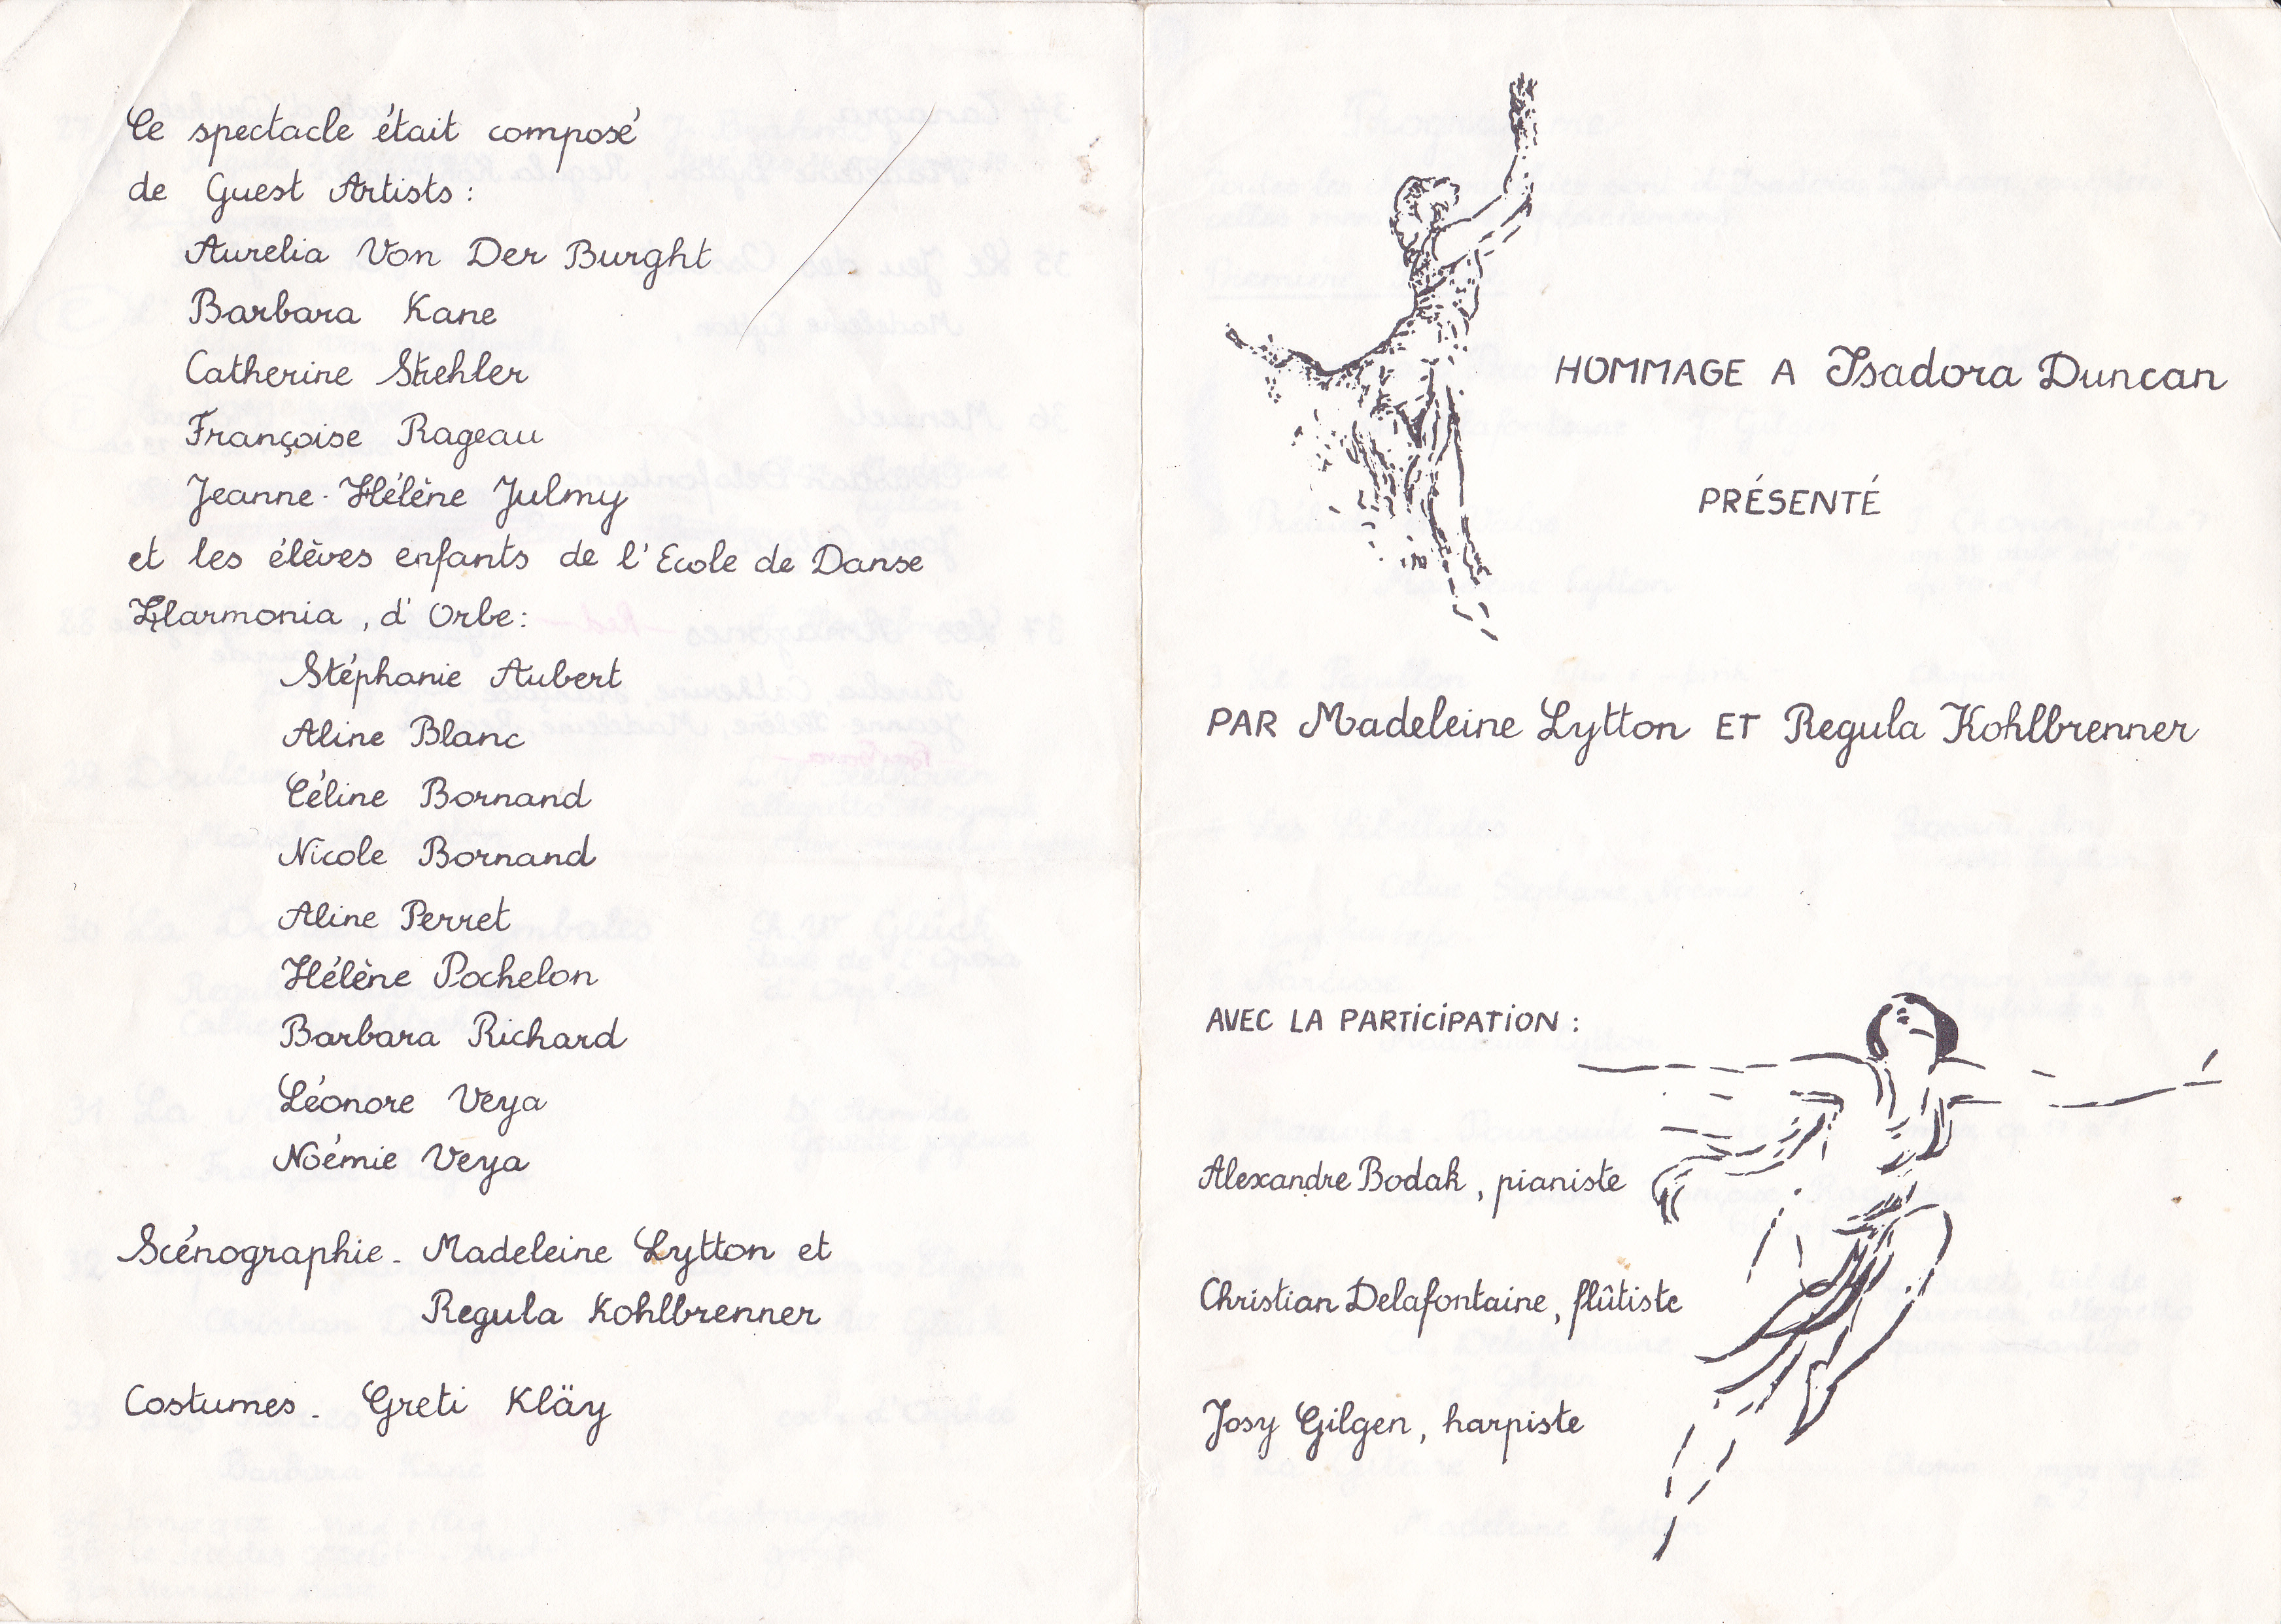 Ce spectacle était composé
de Guest Artists :
Aurelia Von Der Burght
Barbara Kane
Catherine Strehler
Françoise Rageau
Jeanne-Hélène Julmy
et les élèves enfants de l'Ecole de Danse
Harmonia, d'Orbe :
Stéphanie Aubert
Aline Blanc
Céline Bornand
Nicole Bornand
Aline Perret
Hélène Pochelon
Barbara Richard
Léonore Veya
Noémie Veya
Scénographie - Madeleine Lytton et
Regula Kohlbrenner
Costumes - Greti Kläy
HOMMAGE A Isadora Duncan
PRÉSENTÉ
PAR Madeleine Lytton ET Regula Kohlbrenner
AVEC LA PARTICIPATION :
Alexandre Bodak, pianiste
Christian Delafontaine, flûtiste
Josy Gilgen, harpiste